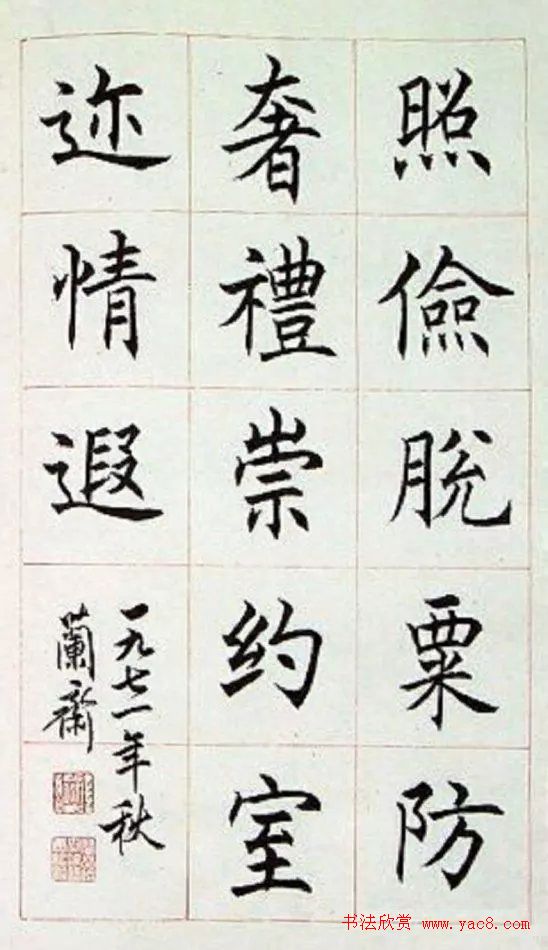 照儉脫粟防
奢禮崇约室
迩情遐
一九七一年秋
蘭齋
书法欣赏 www.yac8.com